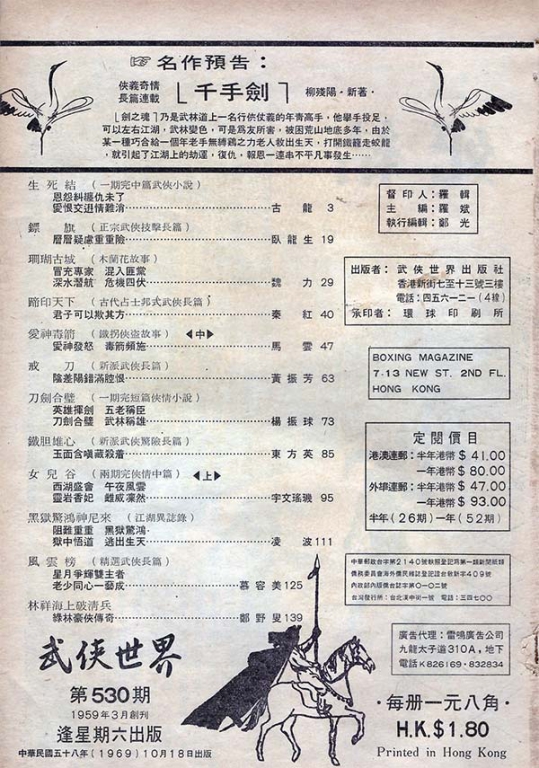 ☞名作預告：
俠義奇情
長篇連載
「千手劍」
柳殘陽·新著·
「劍之魂」乃是武林道上一名行俠仗義的年青高手，他舉手投足，
可以左右江湖，武林變色，可是爲友所害，被困荒山地底多年，由於
某一種巧合給一個年老手無縛鷄之力老人救出生天，打開鐵籠走蛟龍
，就引起了江湖上的劫運，復仇，報恩一連串不平凡事發生……
生死結（一期完中篇武俠小說）
恩怨糾纏仇未了
愛恨交迸情難消 古龍 3
鏢旗（正宗武俠技擊長篇）
層層疑慮重重險 臥龍生 19
珊瑚古城（木蘭花故事）
冒充專家　混入匪黨
深水潛航　危機四伏 魏力 29
蹄印天下（古代占士邦式武俠長篇）
君子可以欺其方 秦紅 40
愛神毒箭（鐵拐俠盜故事）◀中▶
愛神發怒　毒箭頻施 馬雲 47
戒刀（新派武俠長篇）
陰差陽錯滿腔恨 黃振芳 63
刀劍合壁（一期完短篇俠情小說）
英雄揮劍　五老稱臣
刀劍合壁　武林稱雄 楊振球 73
鐵胆雄心（新派武俠驚險長篇）
玉面含嗔藏殺着 東方英 85
女兒谷（兩期完俠情中篇）◀上▶
西湖盛會　午夜風雲
靈岩香妃　雌威凜然 宇文瑤璣 95
黑獄驚鴻神尼來（江湖異誌錄）
阻難重重　黑獄驚鴻
獄中悟道　逃出生天 凌波 111
風雲榜（精選武俠長篇）
星月爭輝雙主者
老少同心一藝成 慕容美 125
林祥海上破清兵
綠林豪俠傳奇 鄭野叟 139
武俠世界
第530期
1959年3月創刋
逢星期六出版
中華民國五十八年（1969）10月18日出版
督印人：羅輯
主編：羅斌
執行編輯：鄭光
出版者：武俠世界出版社
香港新街七至十三號三樓
電話：四五六一二一（4線）
承印者：環球印刷所
BOXING MAGAZINE
7-13 NEW ST. 2ND FL.
HONG KONG
定閱價目
港澳連郵：半年港幣＄41.00
一年港幣＄80.00
外埠連郵：半年港幣＄47.00
一年港幣＄93.00
半年（26期）一年（52期）
中華郵政台字第2140號執照登記爲第一類新聞紙類
僑務委員會海外僑民雜誌登記證台敎新字409號
內政部內版僑台誌字第0一〇三號
台灣發行所：台北漢中街一號　電話：三四七〇〇
廣告代理：雷鳴廣告公司
九龍太子道310A，地下
電話K826169·832834
·每册一元八角·
H.K.$1.80
Printed in Hong Kong